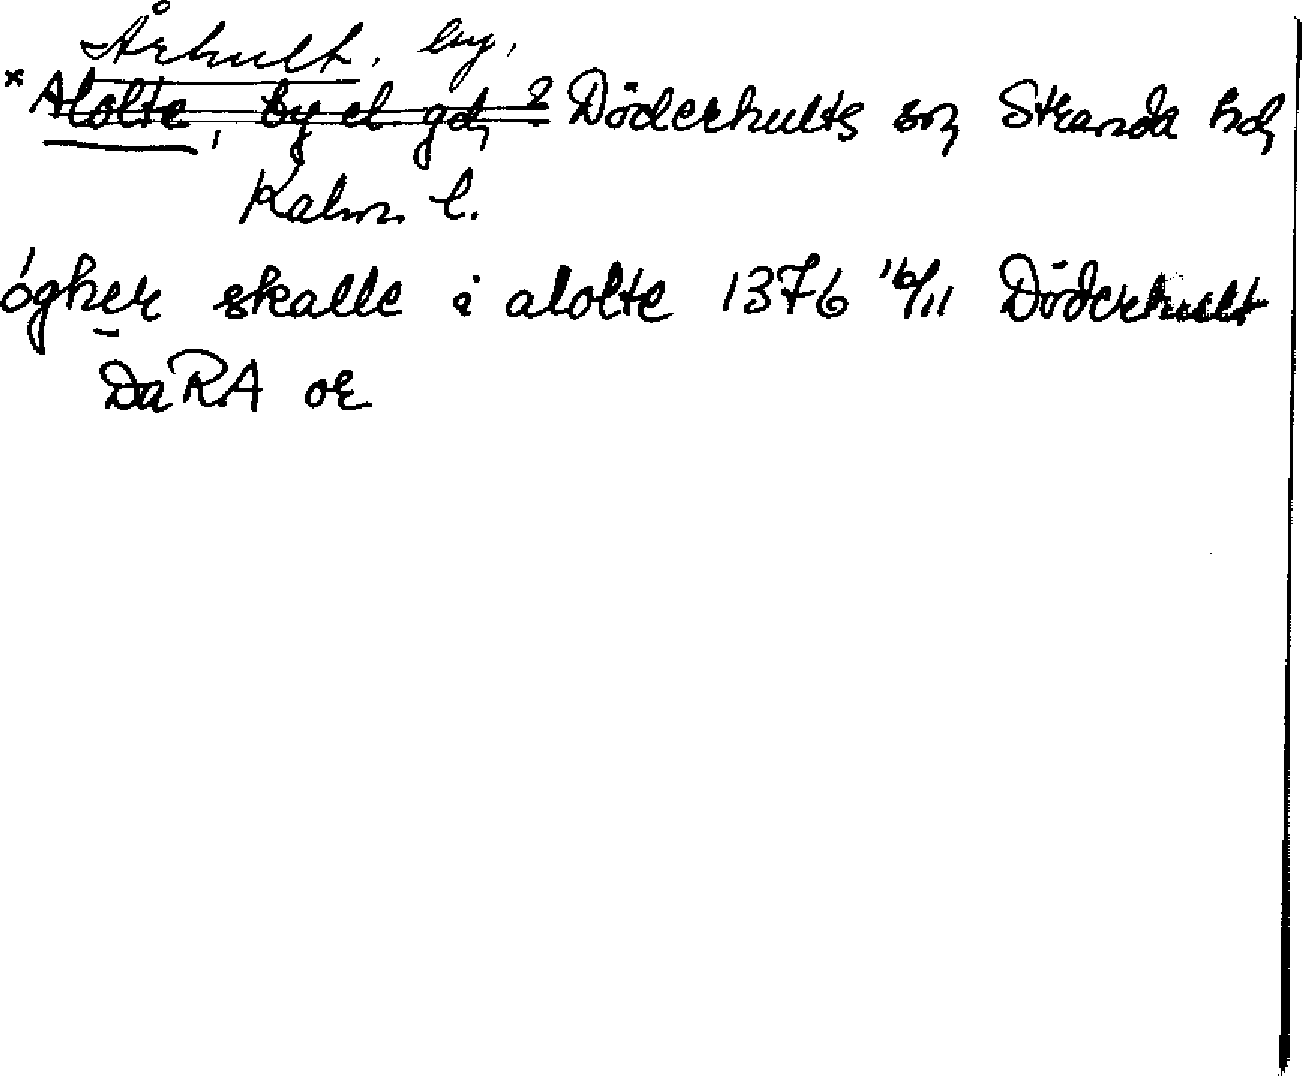 Århult, by,
*Alolte, by el gd, ? Döderhults sn, Stranda hd,
Kalm. l.
ógher skalle i alolte 1376 16/11 Döderhult
DaRA or